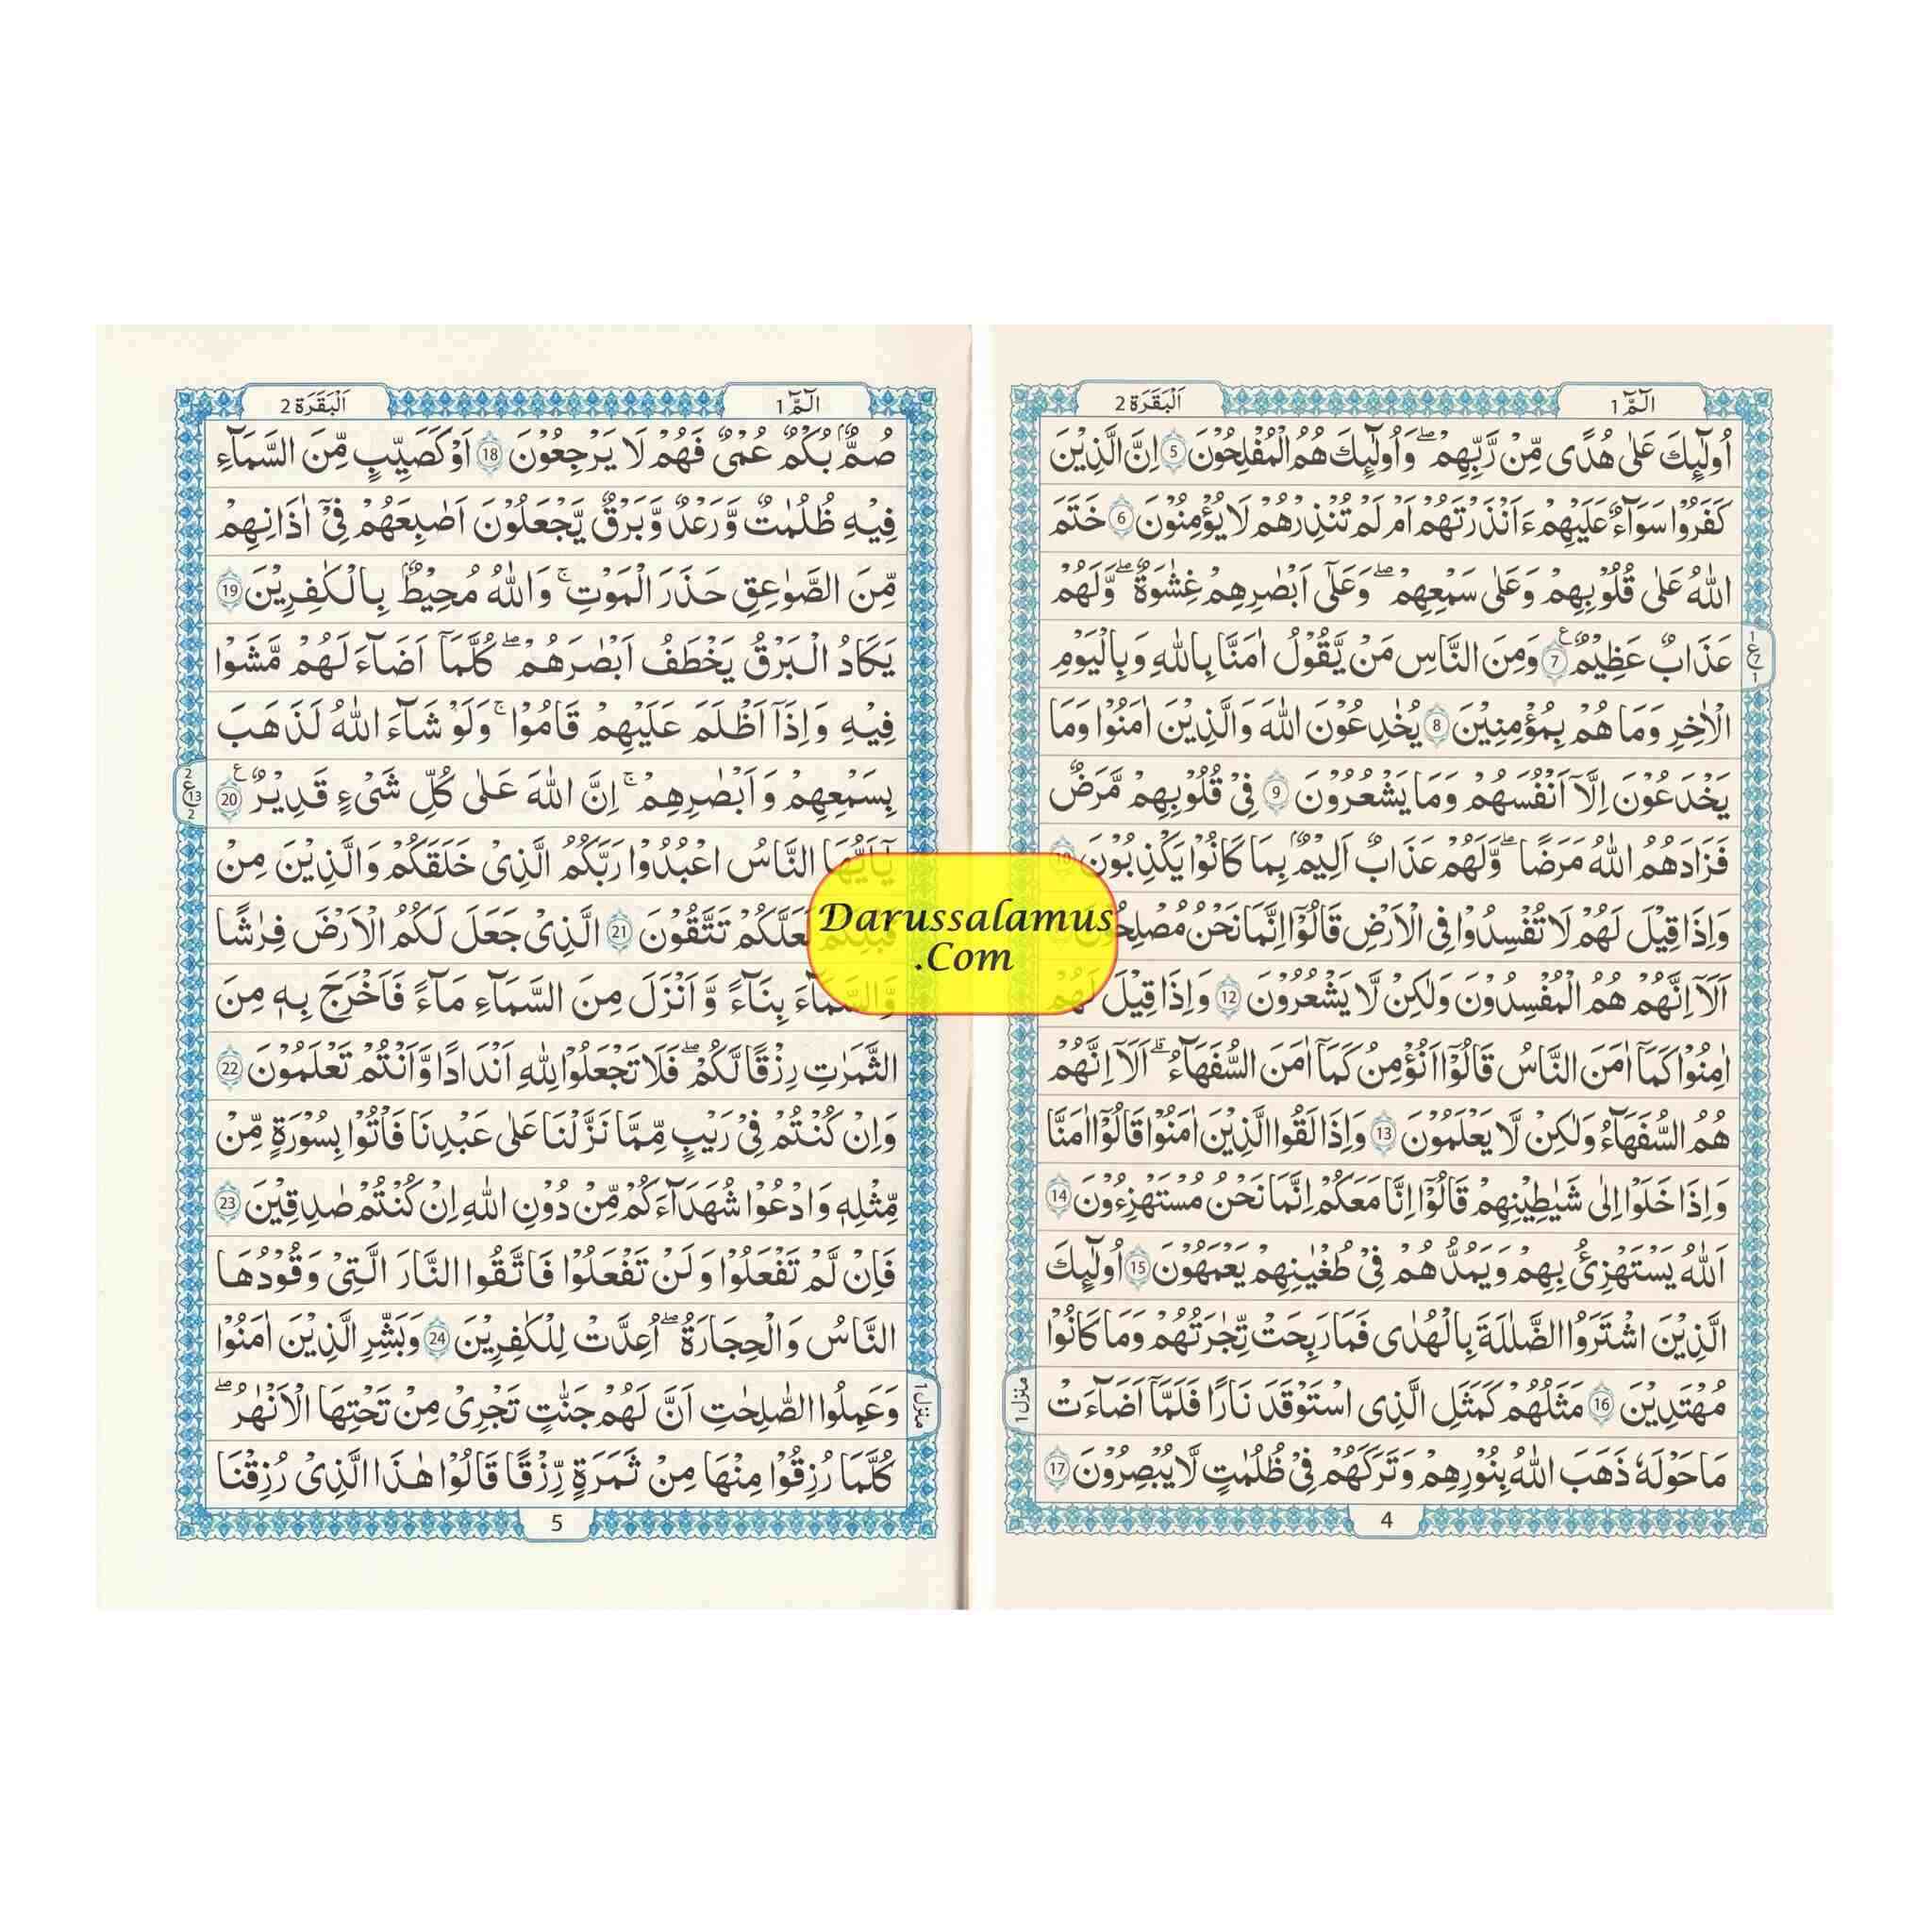 الٓمّٓ 1
اَلْبَقَرَة 2
اُولٰٓئِكَ عَلٰى هُدًى مِّنْ رَّبِّهِمْ ۖ وَاُولٰٓئِكَ هُمُ الْمُفْلِحُوْنَ 5 اِنَّ الَّذِيْنَ
كَفَرُوْا سَوَآءٌ عَلَيْهِمْ ءَاَنْذَرْتَهُمْ اَمْ لَمْ تُنْذِرْهُمْ لَا يُؤْمِنُوْنَ 6 خَتَمَ
اللّٰهُ عَلٰى قُلُوْبِهِمْ وَعَلٰى سَمْعِهِمْ ۖ وَعَلٰٓى اَبْصٰرِهِمْ غِشٰوَةٌ ۖ وَّلَهُمْ
عَذَابٌ عَظِيْمٌ 7 وَمِنَ النَّاسِ مَنْ يَّقُوْلُ اٰمَنَّا بِاللّٰهِ وَبِالْيَوْمِ
الْاٰخِرِ وَمَا هُمْ بِمُؤْمِنِيْنَ 8 يُخٰدِعُوْنَ اللّٰهَ وَالَّذِيْنَ اٰمَنُوْا وَمَا
يَخْدَعُوْنَ اِلَّآ اَنْفُسَهُمْ وَمَا يَشْعُرُوْنَ 9 فِيْ قُلُوْبِهِمْ مَّرَضٌ
فَزَادَهُمُ اللّٰهُ مَرَضًا ۖ وَّلَهُمْ عَذَابٌ اَلِيْمٌۢ بِمَا كَانُوْا يَكْذِبُوْنَ 10
وَاِذَا قِيْلَ لَهُمْ لَا تُفْسِدُوْا فِى الْاَرْضِ قَالُوْٓا اِنَّمَا نَحْنُ مُصْلِحُوْنَ
اَلَآ اِنَّهُمْ هُمُ الْمُفْسِدُوْنَ وَلٰكِنْ لَّا يَشْعُرُوْنَ 12 وَاِذَا قِيْلَ لَهُمْ
اٰمِنُوْا كَمَآ اٰمَنَ النَّاسُ قَالُوْٓا اَنُؤْمِنُ كَمَآ اٰمَنَ السُّفَهَآءُ ۗ اَلَآ اِنَّهُمْ
هُمُ السُّفَهَآءُ وَلٰكِنْ لَّا يَعْلَمُوْنَ 13 وَاِذَا لَقُوا الَّذِيْنَ اٰمَنُوْا قَالُوْٓا اٰمَنَّا
وَاِذَا خَلَوْا اِلٰى شَيٰطِيْنِهِمْ قَالُوْٓا اِنَّا مَعَكُمْ اِنَّمَا نَحْنُ مُسْتَهْزِءُوْنَ 14
اَللّٰهُ يَسْتَهْزِئُ بِهِمْ وَيَمُدُّهُمْ فِيْ طُغْيٰنِهِمْ يَعْمَهُوْنَ 15 اُولٰٓئِكَ
الَّذِيْنَ اشْتَرَوُا الضَّلٰلَةَ بِالْهُدٰى فَمَا رَبِحَتْ تِّجٰرَتُهُمْ وَمَا كَانُوْا
مُهْتَدِيْنَ 16 مَثَلُهُمْ كَمَثَلِ الَّذِى اسْتَوْقَدَ نَارًا فَلَمَّآ اَضَآءَتْ
مَا حَوْلَهٗ ذَهَبَ اللّٰهُ بِنُوْرِهِمْ وَتَرَكَهُمْ فِيْ ظُلُمٰتٍ لَّا يُبْصِرُوْنَ 17
1
ع
7
1
منزل 1
4
الٓمّٓ 1
اَلْبَقَرَة 2
صُمٌّۢ بُكْمٌ عُمْيٌ فَهُمْ لَا يَرْجِعُوْنَ 18 اَوْ كَصَيِّبٍ مِّنَ السَّمَآءِ
فِيْهِ ظُلُمٰتٌ وَّرَعْدٌ وَّبَرْقٌ يَّجْعَلُوْنَ اَصٰبِعَهُمْ فِيْٓ اٰذَانِهِمْ
مِّنَ الصَّوٰعِقِ حَذَرَ الْمَوْتِ ۚ وَاللّٰهُ مُحِيْطٌۢ بِالْكٰفِرِيْنَ 19
يَكَادُ الْبَرْقُ يَخْطَفُ اَبْصٰرَهُمْ ۖ كُلَّمَآ اَضَآءَ لَهُمْ مَّشَوْا
فِيْهِ وَاِذَآ اَظْلَمَ عَلَيْهِمْ قَامُوْا ۚ وَلَوْ شَآءَ اللّٰهُ لَذَهَبَ
بِسَمْعِهِمْ وَاَبْصٰرِهِمْ ۚ اِنَّ اللّٰهَ عَلٰى كُلِّ شَىْءٍ قَدِيْرٌ 20
يٰٓاَيُّهَا النَّاسُ اعْبُدُوْا رَبَّكُمُ الَّذِىْ خَلَقَكُمْ وَالَّذِيْنَ مِنْ
قَبْلِكُمْ لَعَلَّكُمْ تَتَّقُوْنَ 21 الَّذِىْ جَعَلَ لَكُمُ الْاَرْضَ فِرٰشًا
وَّالسَّمَآءَ بِنَآءً وَّاَنْزَلَ مِنَ السَّمَآءِ مَآءً فَاَخْرَجَ بِهٖ مِنَ
الثَّمَرٰتِ رِزْقًا لَّكُمْ ۖ فَلَا تَجْعَلُوْا لِلّٰهِ اَنْدَادًا وَّاَنْتُمْ تَعْلَمُوْنَ 22
وَاِنْ كُنْتُمْ فِيْ رَيْبٍ مِّمَّا نَزَّلْنَا عَلٰى عَبْدِنَا فَاْتُوْا بِسُوْرَةٍ مِّنْ
مِّثْلِهٖ وَادْعُوْا شُهَدَآءَكُمْ مِّنْ دُوْنِ اللّٰهِ اِنْ كُنْتُمْ صٰدِقِيْنَ 23
فَاِنْ لَّمْ تَفْعَلُوْا وَلَنْ تَفْعَلُوْا فَاتَّقُوا النَّارَ الَّتِيْ وَقُوْدُهَا
النَّاسُ وَالْحِجَارَةُ ۖ اُعِدَّتْ لِلْكٰفِرِيْنَ 24 وَبَشِّرِ الَّذِيْنَ اٰمَنُوْا
وَعَمِلُوا الصّٰلِحٰتِ اَنَّ لَهُمْ جَنّٰتٍ تَجْرِىْ مِنْ تَحْتِهَا الْاَنْهٰرُ ۖ
كُلَّمَا رُزِقُوْا مِنْهَا مِنْ ثَمَرَةٍ رِّزْقًا قَالُوْا هٰذَا الَّذِىْ رُزِقْنَا
2
ع
13
2
منزل 1
5
Darussalamus
.Com